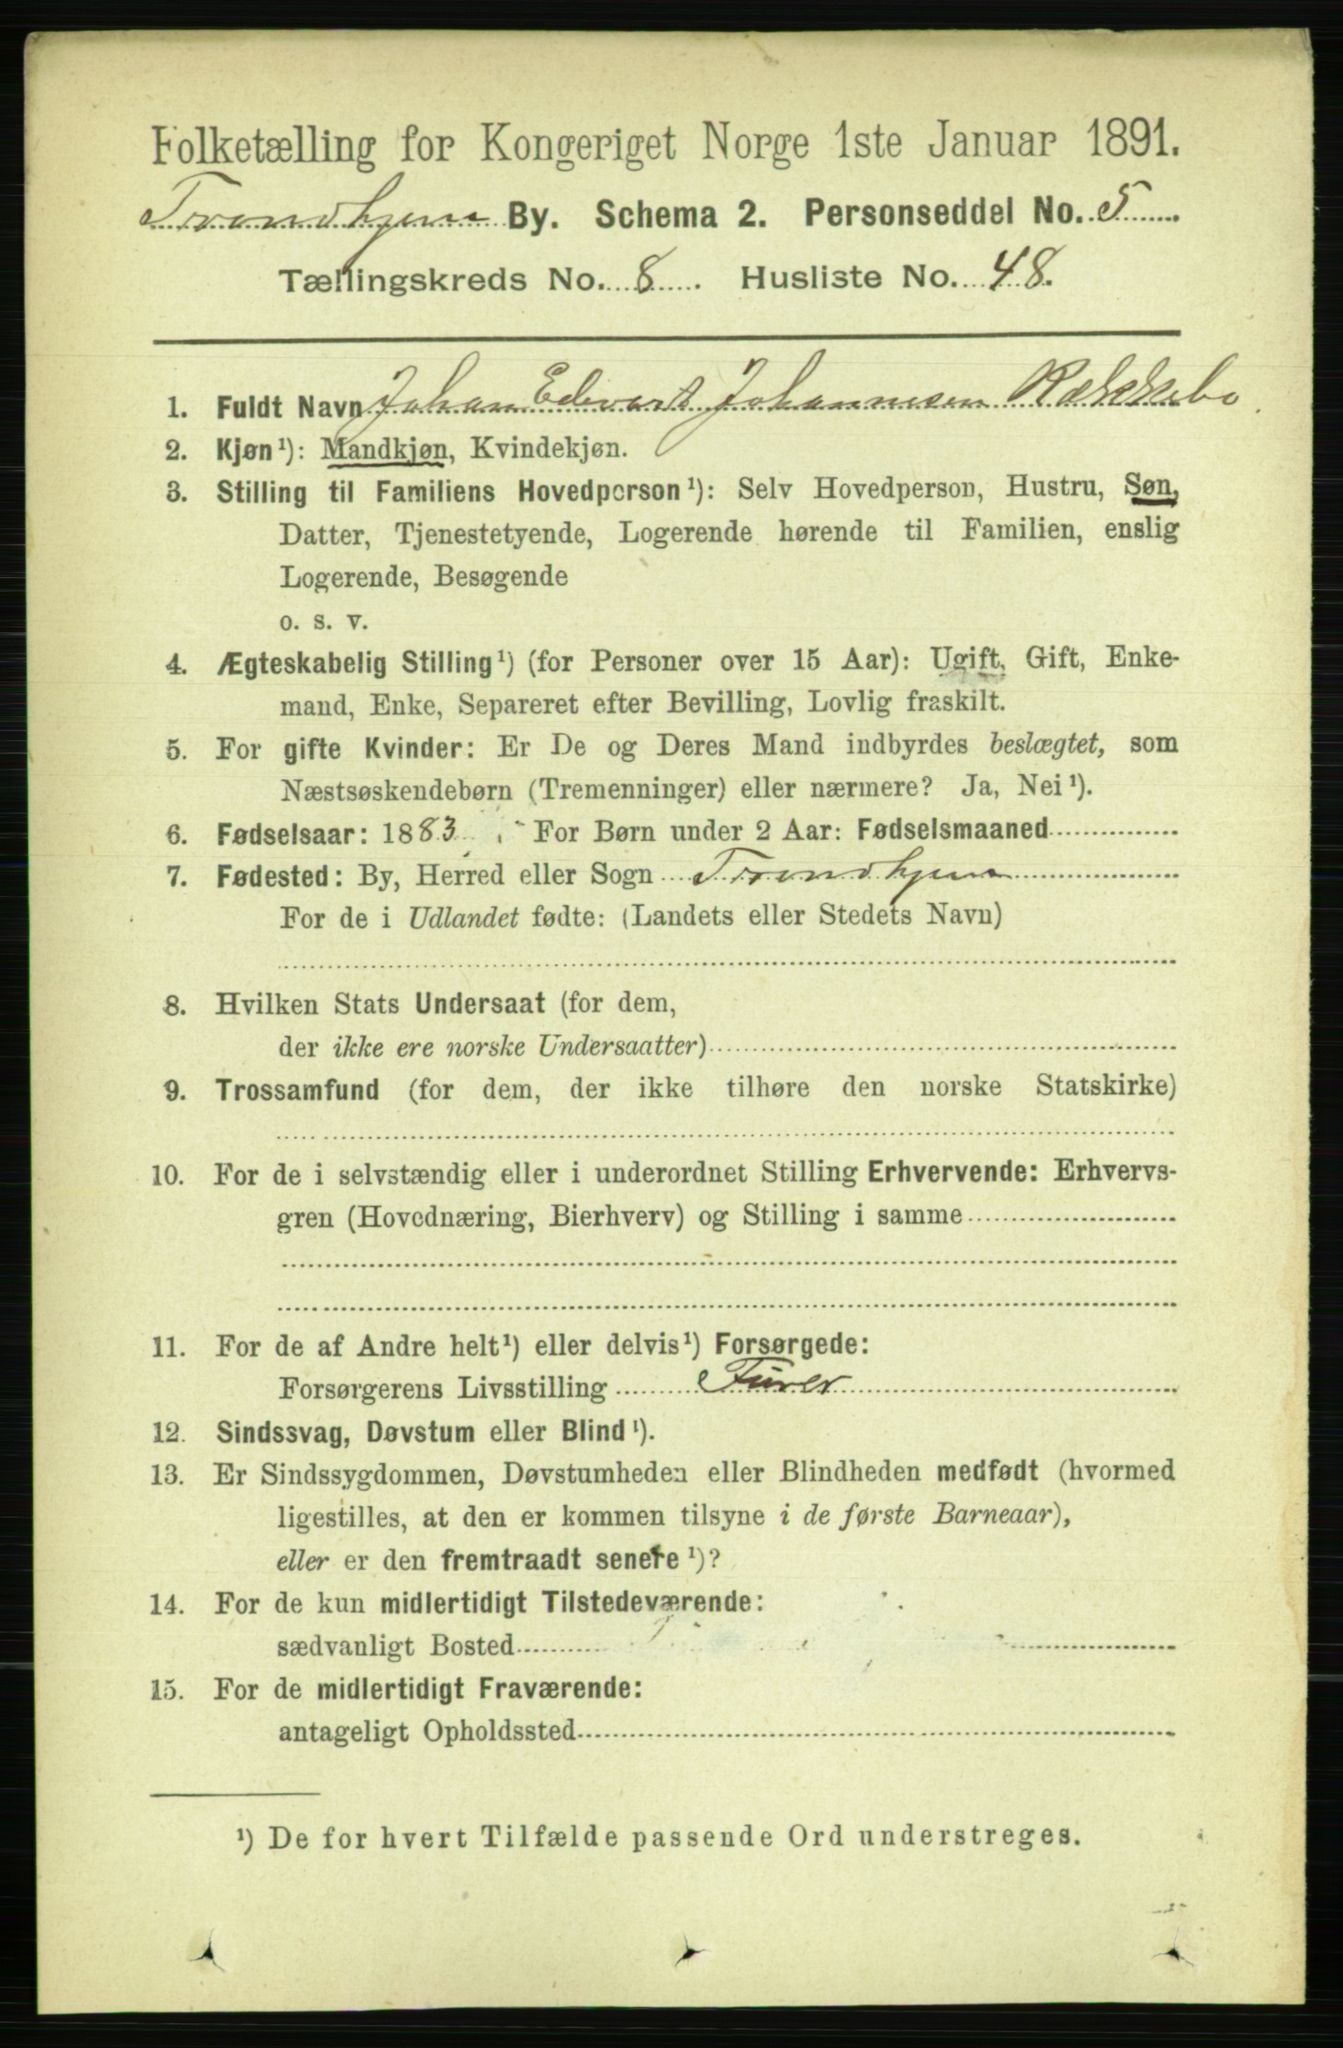 Folketælling for Kongeriget Norge 1ste Januar 1891.
Trondhjem By. Schema 2. Personseddel No. 5
Tællingskreds No. 8. Husliste No. 48.
1. Fuldt Navn Johan Edvart Johannesen Rækkebo
2. Kjøn¹): Mandkjøn, Kvindekjøn.
3. Stilling til Familiens Hovedperson¹): Selv Hovedperson, Hustru, Søn,
Datter, Tjenestetyende, Logerende hørende til Familien, enslig
Logerende, Besøgende
o. s. v.
4. Ægteskabelig Stilling¹) (for Personer over 15 Aar): Ugift, Gift, Enke-
mand, Enke, Separeret efter Bevilling, Lovlig fraskilt.
5. For gifte Kvinder: Er De og Deres Mand indbyrdes beslægtet, som
Næstsøskendebørn (Tremenninger) eller nærmere? Ja, Nei¹).
6. Fødselsaar: 1883. For Børn under 2 Aar: Fødselsmaaned
7. Fødested: By, Herred eller Sogn Trondhjem
For de i Udlandet fødte: (Landets eller Stedets Navn)
8. Hvilken Stats Undersaat (for dem,
der ikke ere norske Undersaatter)
9. Trossamfund (for dem, der ikke tilhøre den norske Statskirke)
10. For de i selvstændig eller i underordnet Stilling Erhvervende: Erhvervs-
gren (Hovednæring, Bierhverv) og Stilling i samme
11. For de af Andre helt¹) eller delvis¹) Forsørgede:
Forsørgerens Livsstilling
12. Sindssvag, Døvstum eller Blind¹).
13. Er Sindssygdommen, Døvstumheden eller Blindheden medfødt (hvormed
ligestilles, at den er kommen tilsyne i de første Barneaar),
eller er den fremtraadt senere¹)?
14. For de kun midlertidigt Tilstedeværende:
sædvanligt Bosted
15. For de midlertidigt Fraværende:
antageligt Opholdssted
¹) De for hvert Tilfælde passende Ord understreges.